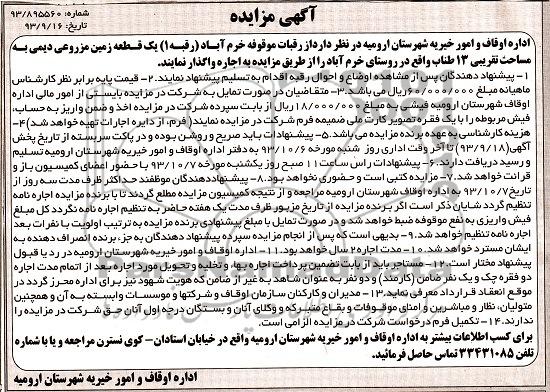 آگهی مزایده
شماره: ۹۳/۸۹۵۵۶۰
تاریخ: ۹۳/۹/۱۶
اداره اوقاف و امور خیریه شهرستان ارومیه در نظر دارد از رقبات موقوفه خرم آباد (رقبه ۱) یک قطعه زمین مزروعی دیمی به
مساحت تقریبی ۱۳ طناب واقع در روستای خرم آباد را از طریق مزایده به اجاره واگذار نمایند.
۱- پیشنهاد دهندگان پس از مشاهده اوضاع و احوال رقبه اقدام به تسلیم پیشنهاد نمایند. ۲- قیمت پایه برابر نظر کارشناس
ماهیانه مبلغ ریال می باشد. ۳- متقاضیان در صورت تمایل به شرکت در مزایده بایستی از امور مالی اداره
اوقاف شهرستان ارومیه فیشی به مبلغ ۱۸/۰۰۰/۰۰۰ ریال از بابت سپرده شرکت در مزایده اخذ و ضمن واریز به حساب،
فیش مربوطه را با یک فقره تصویر کارت ملی ضمیمه فرم شرکت در مزایده نمایند( فرم از دایره اجارات تهیه خواهد شد) ۴-
هزینه کارشناسی به عهده برنده مزایده می باشد. ۵- پیشنهادات باید صریح و روشن بوده و در پاکت سربسته از تاریخ پخش
آگهی(۹۳/۹/۱۸) تا آخر وقت اداری روز شنبه مورخه ۹۳/۱۰/۶ به دفتر اداره اوقاف و امور خیریه شهرستان ارومیه تسلیم
و رسید دریافت دارند. ۶- پیشنهادات راس ساعت ۱۱ صبح روز یکشنبه مورخه ۹۳/۱۰/۷ با حضور اعضای کمیسیون باز و
قرائت خواهد شد. ۷- مزایده کتبی است و حضوری نخواهد بود. ۸- پیشنهاد دهندگان موظفند حداکثر ظرف مدت سه روز از
تاریخ ۹۳/۱۰/۷ به اداره اوقاف شهرستان ارومیه مراجعه و از نتیجه کمیسیون مزایده مطلع گردند تا با برنده مزایده اجاره نامه
تنظیم گردد شایان ذکر است اگر برنده مزایده از تاریخ مزبور ظرف مدت یک هفته حاضر به تنظیم اجاره نامه نگردد کل مبلغ
فیش واریزی به نفع موقوفه ضبط خواهد شد و در صورت تمایل با مبلغ پیشنهادی برنده مزایده به ترتیب اولویت با نفرات بعد
اجاره نامه تنظیم خواهد شد. ۹- بدیهی است که پس از انجام مزایده سپرده پیشنهاد دهندگان به جز، برنده انصراف دهنده به
ایشان مسترد خواهد شد. ۱۰- مدت اجاره ۲ سال خواهد بود. ۱۱- اداره اوقاف و امور خیریه شهرستان ارومیه در رد یا قبول
پیشنهاد مختار است. ۱۲- مستاجر باید از بابت تضمین پرداخت اجاره بهاء و تخلیه و تحویل مورد اجاره بعد از اتمام مدت اجاره
دو فقره چک و یک نفر ضامن (کارمند) و دو نفر به عنوان شاهد به غیر از ضامن که هویت شهود نیز برای اداره محرز گردد در
موقع انعقاد قرارداد معرفی نماید. ۱۳- مدیران و کارکنان سازمان اوقاف و شرکتها و موسسات وابسته به آن و همچنین
متولیان، نظار و مباشرین و امنای موقوفات و بقاع متبرکه و وکلای آنان و بستگان درجه اول آنان حق شرکت در مزایده را
ندارند. ۱۴- تکمیل فرم درخواست شرکت در مزایده الزامی است.
برای کسب اطلاعات بیشتر به اداره اوقاف و امور خیریه شهرستان ارومیه واقع در خیابان استادان - کوی نسترن مراجعه و یا با شماره
تلفن ۳۳۴۳۱۰۸۵ تماس حاصل فرمائید.
اداره اوقاف و امور خیریه شهرستان ارومیه